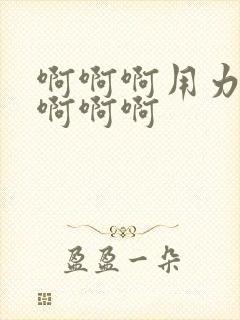 啊啊啊用力
啊啊啊
盈盈一朵